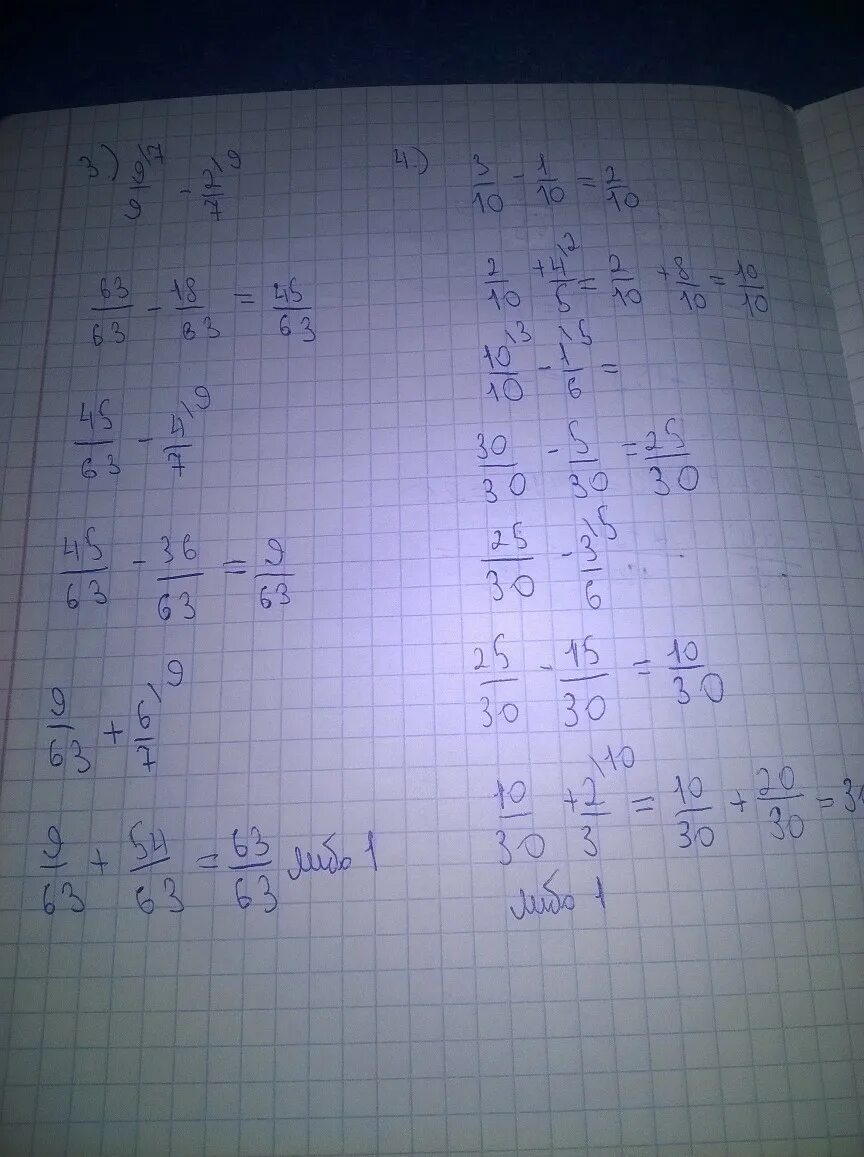 3.) 9/9\7 - 2/7\9
63/63 - 18/63 = 45/63
45/63 - 4/7\9
45/63 - 36/63 = 9/63
9/63 + 6/7\9
9/63 + 54/63 = 63/63 либо 1
4.) 3/10 - 1/10 = 2/10
2/10 + 4/5\2 = 2/10 + 8/10 = 10/10
10/10\3 - 1/6\5 =
30/30 - 5/30 = 25/30
25/30 - 3/6\5
25/30 - 15/30 = 10/30
10/30 + 2/3\10 = 10/30 + 20/30 = 3
либо 1